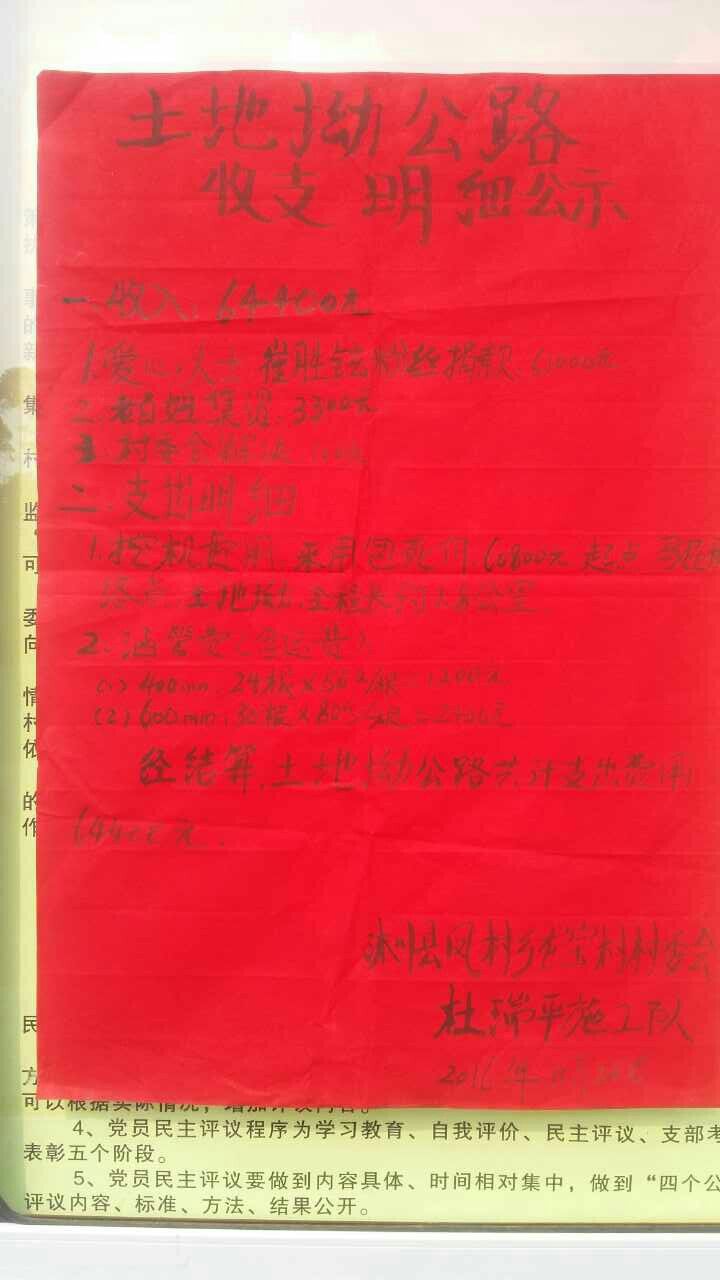 土地拗公路
收支明细公示
一.收入:64400元
1.爱心人士崔胜铉粉丝捐款.61000元
2.老百姓集资.3300元
3.村委会解决100元
二.支出明细
1.挖机费用.采用包死价60800元起点
落点.土地拗.全程长约 公里.
2.涵管费(含运费)
(1)400mm.24根×50元/根=1200元
(2)600mm:30根×80元/根=2400元
经结算.土地拗公路共计支出费用
64400元.
沐川县凤村乡 村村委会
杜瑞平施工队
2016年
集
村
监
可
委
向
情
村
依
的
作
民
方
可以根据实际情况,增加评议内容。
4、党员民主评议程序为学习教育、自我评价、民主评议、支部考
表彰五个阶段。
5、党员民主评议要做到内容具体、时间相对集中,做到“四个公
评议内容、标准、方法、结果公开。